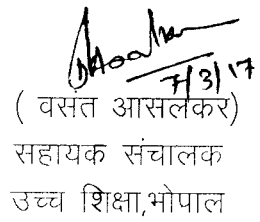 7/3/17
( वसंत आसलकर)
सहायक संचालक
उच्च शिक्षा,भोपाल